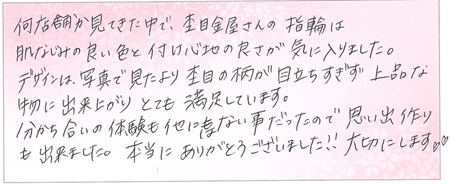 何店舗か見てきた中で、杢目金屋さんの指輪は
肌なじみの良い色と付け心地の良さが気に入りました。
デザインは、写真で見たより杢目の柄が目立ちすぎず上品な
物に出来上がりとても満足しています。
分かち合いの体験も他に無い事だったので思い出作り
も出来ました。本当にありがとうございました!!大切にします♡♡